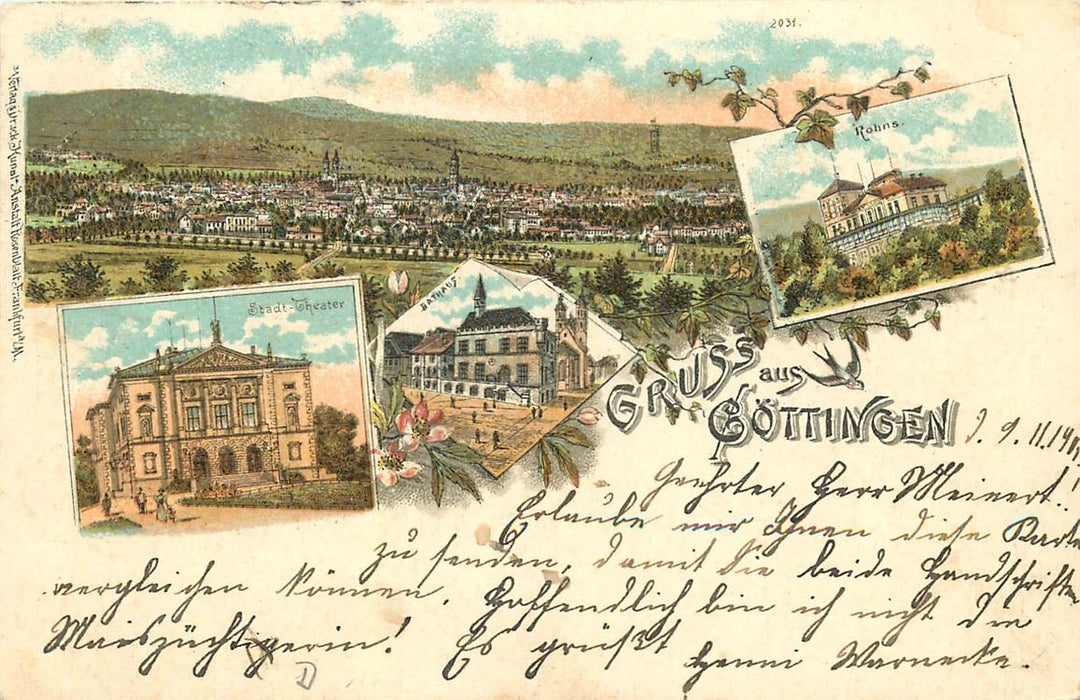 2031.
Verlag & Druck Kunst-Anstalt Rosenblatt Frankfurt a/M.
Rohns.
Stadt-Theater
RATHAUS
GRUSS aus
GÖTTINGEN
d. 9. 11. 190
Geehrter Herr Meinert!
Erlaube mir Ihnen diese Karte
zu senden, damit Sie beide Handschriften
vergleichen können. Hoffendlich bin ich nicht die
Maiszüchtigerin! Es grüßt
Henni Warnecke.